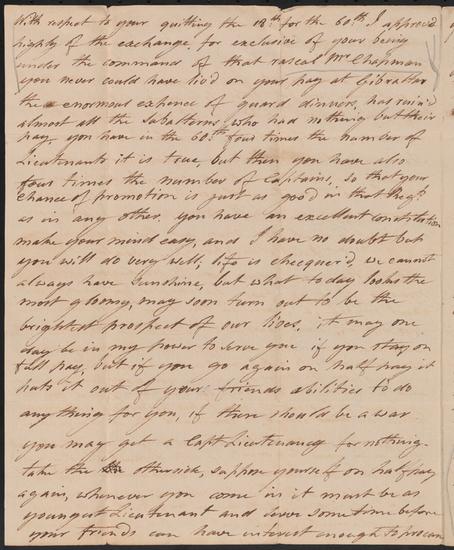 With respect to your quitting the 18th for the 60th, I approve
highly of the exchange, for exclusive of your being
under the command of that rascal Mr Chapman
you never could have liv'd on your pay at Gibraltar
the enormous expence of guard dinners, has ruin'd
almost all the Subalterns, who had nothing but their
pay. you have in the 60th four times the number of
Lieutenants it is true, but then you have also
four times the number of Captains, so that your
chance of promotion is just as good in that Regt
as in any other. you have an excellent constitution
make your mind easy, and I have no doubt but
you will do very well, life is checquer'd, we cannot
always have sunshine, but what to day looks the
most gloomy, may soon turn out to be the
brightest prospect of our lives. it may one
day be in my power to serve you if you stay on
full pay, but if you go again on half pay it
puts it out of your friends abilities to do
any thing for you, if there should be a war
you may get a Capt Lieutenancy for nothing.
take the other side, suppose yourself on half pay
again, whenever you come in it must be as
youngest Lieutenant and some time before
your friends can have interest enough to procure